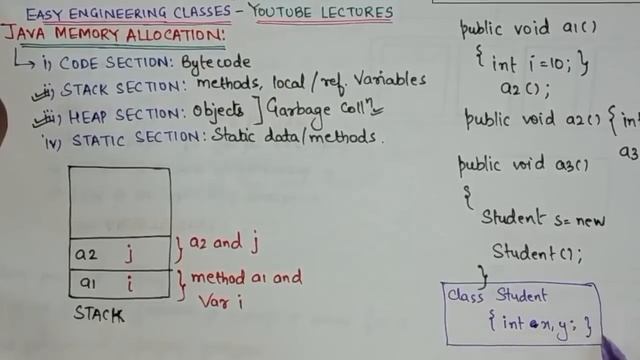 EASY ENGINEERING CLASSES - YOUTUBE LECTURES
JAVA MEMORY ALLOCATION:
i) CODE SECTION: Bytecode
ii) STACK SECTION: methods, local/ref. Variables
iii) HEAP SECTION: Objects ] Garbage Collⁿ
iv) STATIC SECTION: Static data/methods.
a2 j } a2 and j
a1 i } method a1 and
Var i
STACK
public void a1()
{ int i=10; }
a2();
public void a2() { int
a3
public void a3()
{
Student s= new
Student();
}
Class Student
{ int x, y; }